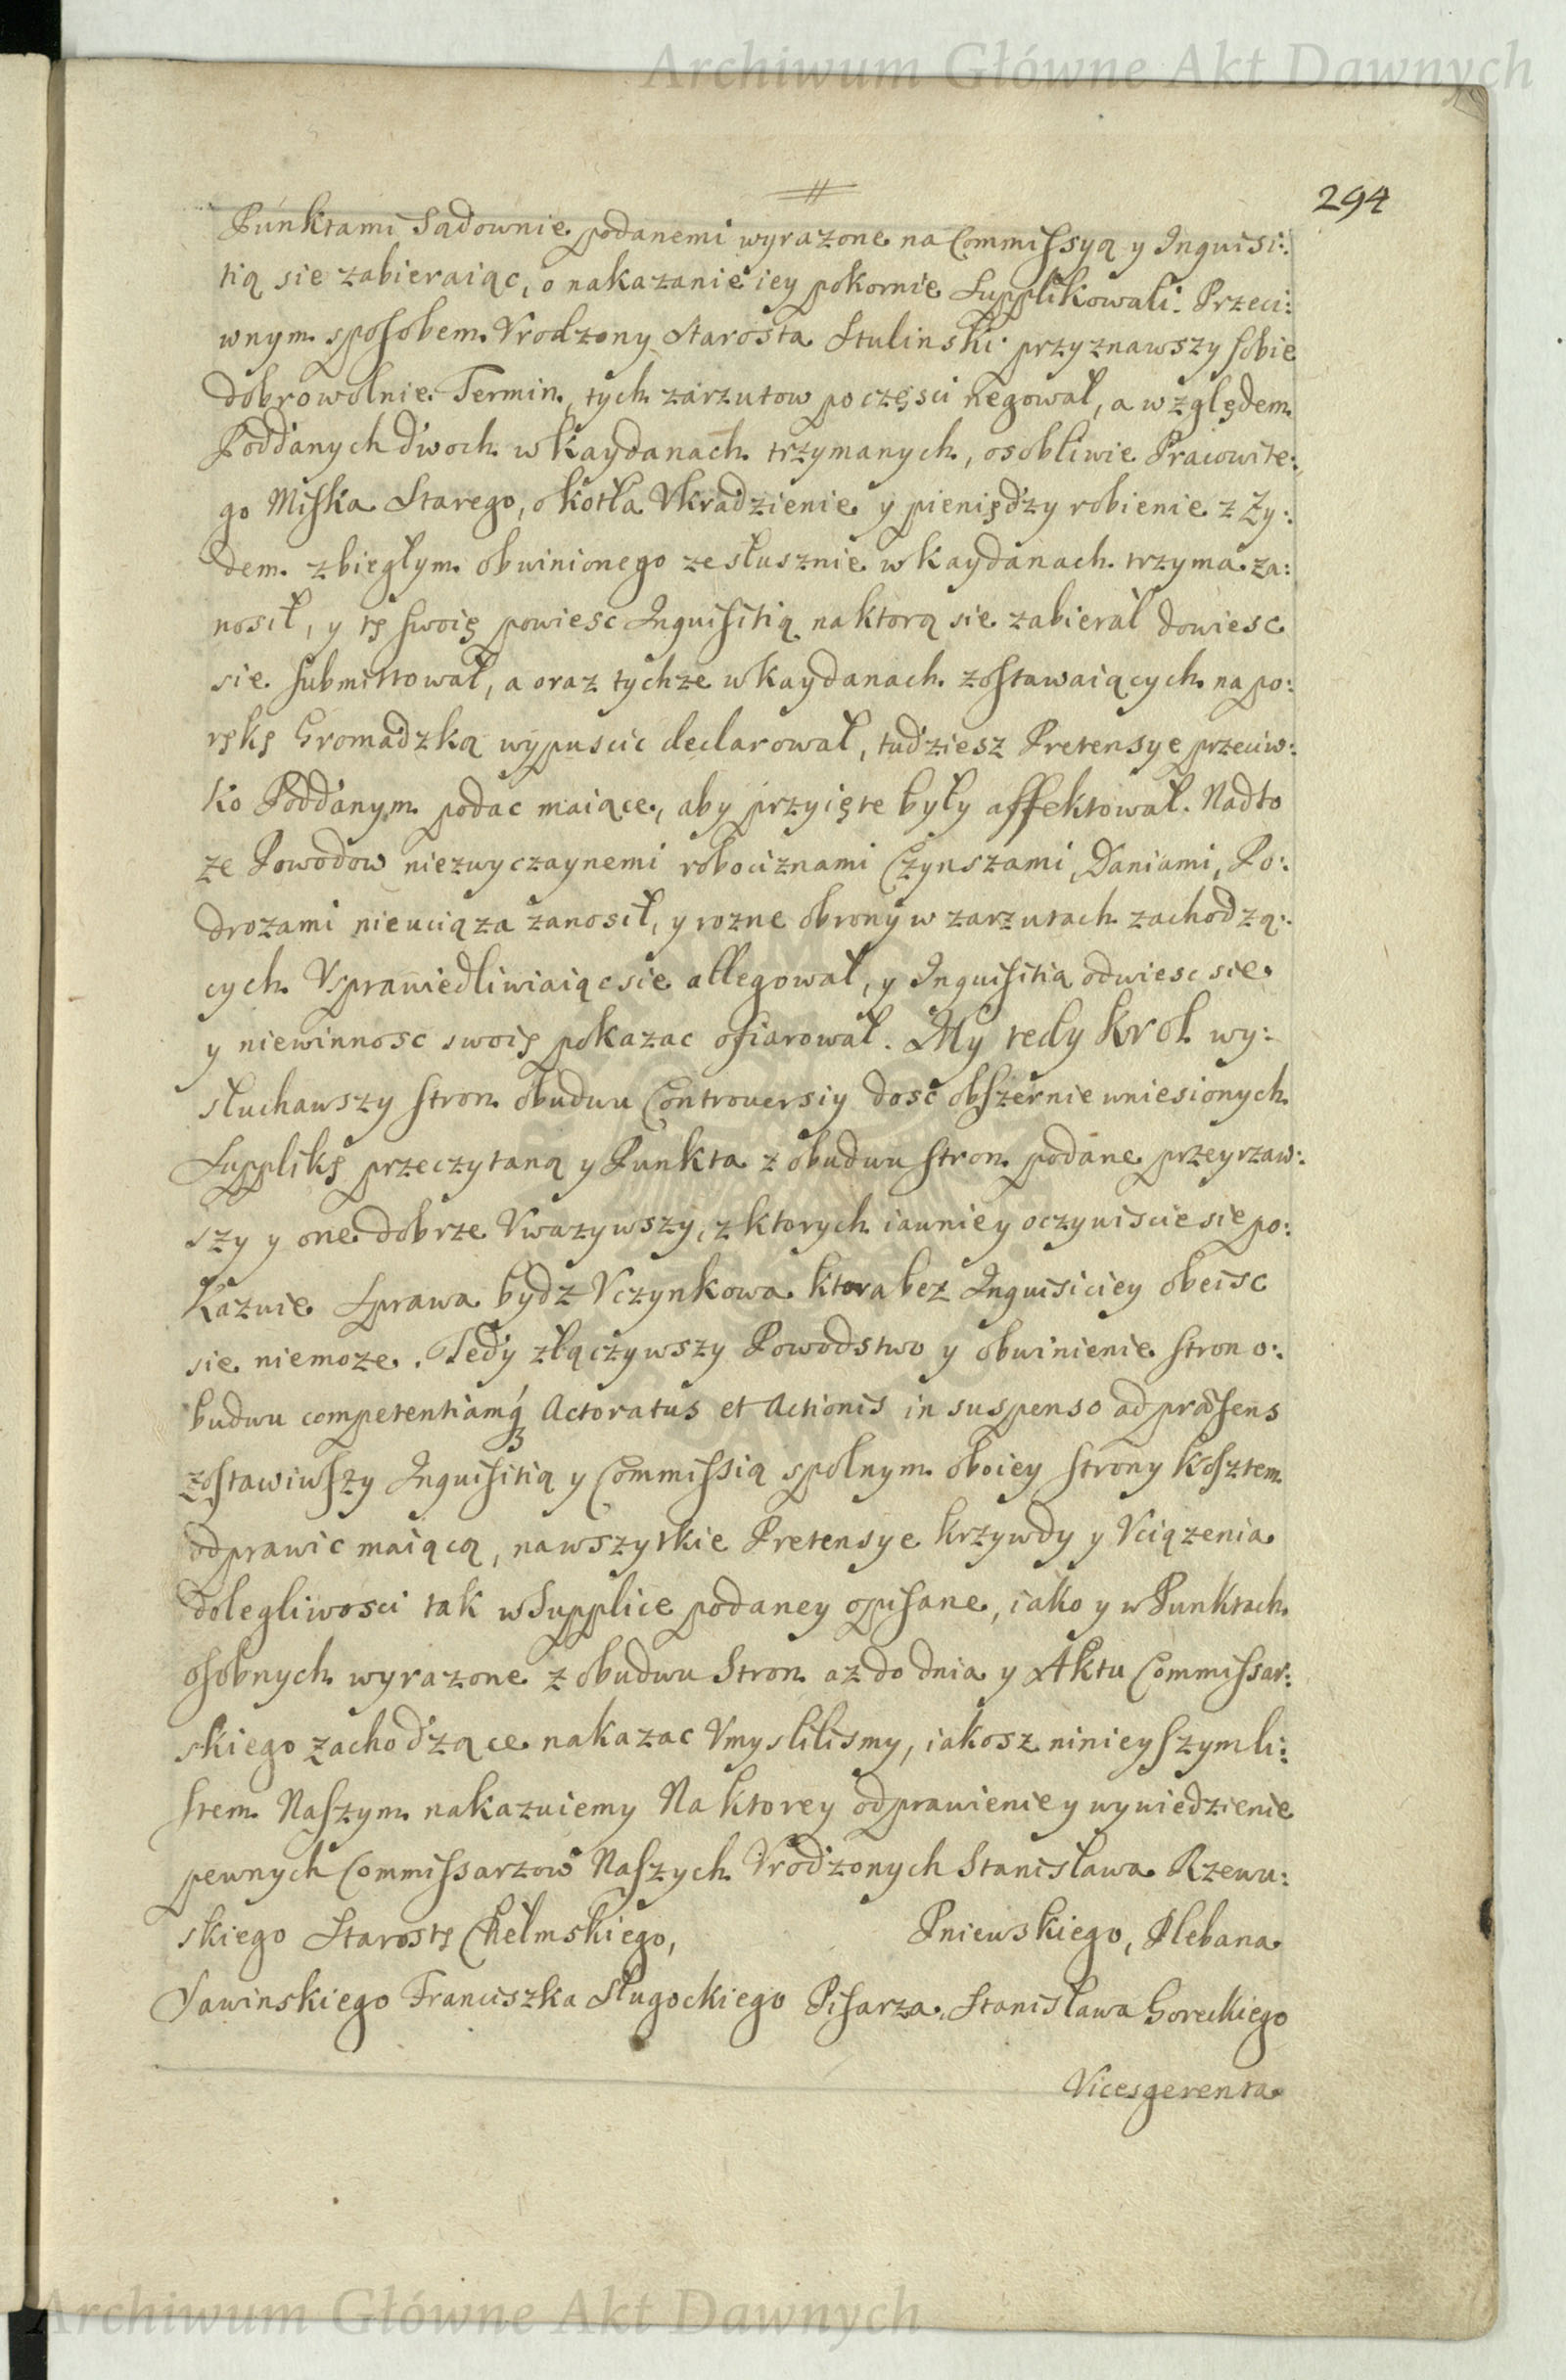 Archiwum Główne Akt Dawnych
294
Punktami Sądownie podanemi wyrazone na Commissyą y Inquisi:
tią sie zabieraiąc, o nakazanie iey pokornie supplikowali. Przeci:
wnym sposobem Vrodzony Starosta Stulinski przyznawszy sobie
dobrowolnie Termin, tych zarzutow po częsci negował, a względem
Poddanych dwoch w kaydanach trzymanych, osobliwie Pracowite:
go Miska Starego, o kotła Vkradzienie y pieniędzy robienie z Zy:
dem zbiegłym obwinionego ze słusznie w kaydanach trzyma za:
nosił, y tę swoię powiesc Inquisitią na ktorą sie zabierał dowiesc
sie submittował, a oraz tychze w kaydanach zostawaiących na po:
rękę Gromadzką wypuscic declarował, tudziesz Pretensye przeciw:
ko Poddanym podac maiące, aby przyięte były affektował. Nadto
ze Powodow niezwyczaynemi robociznami Czynszami, Daniami, Po:
drozami nieuciąza zanosił, y rozne obrony w zarzutach zachodzą:
cych Vsprawiedliwiaiąc sie allegował, y Inquisitią odwiesc sie
y niewinnosc swoię pokazac ofiarował. My tedy Krol wy:
słuchawszy stron obudwu Controversiy dosc obszernie wniesionych
Supplikę przeczytaną y Punkta z obudwu stron podane przeyrzaw:
szy y one dobrze Vwazywszy, z ktorych iawnie y oczywiscie sie po:
kazuie sprawa bydz Vczynkowa ktora bez Inquisiciey obeisc
sie niemoze. Tedy złączywszy Powodstwo y obwinienie stron o:
budwu competentiamq́ꝫ Actoratus et Actionis in suspenso ad præsens
zostawiwszy Inquisitią y Commissią spolnym oboiey strony kosztem
odprawic maiącą, na wszytkie Pretensye krzywdy y Vciązenia
dolegliwosci tak w Supplice podaney opisane, iako y w Punktach
osobnych wyrazone z obudwu Stron az do dnia y Aktu Commissar:
skiego zachodzące nakazac Vmyslilismy, iakosz ninieyszym li:
stem Naszym nakazuiemy Na ktorey odprawienie y wywiedzienie
pewnych Commissarzow Naszych Vrodzonych Stanisława Rzewu:
skiego Starostę Chełmskiego, Pniewskiego, Plebana
Sawinskiego Franciszka Sługockiego Pisarza, Stanisława Goreckiego
Vicesgerenta
Archiwum Główne Akt Dawnych